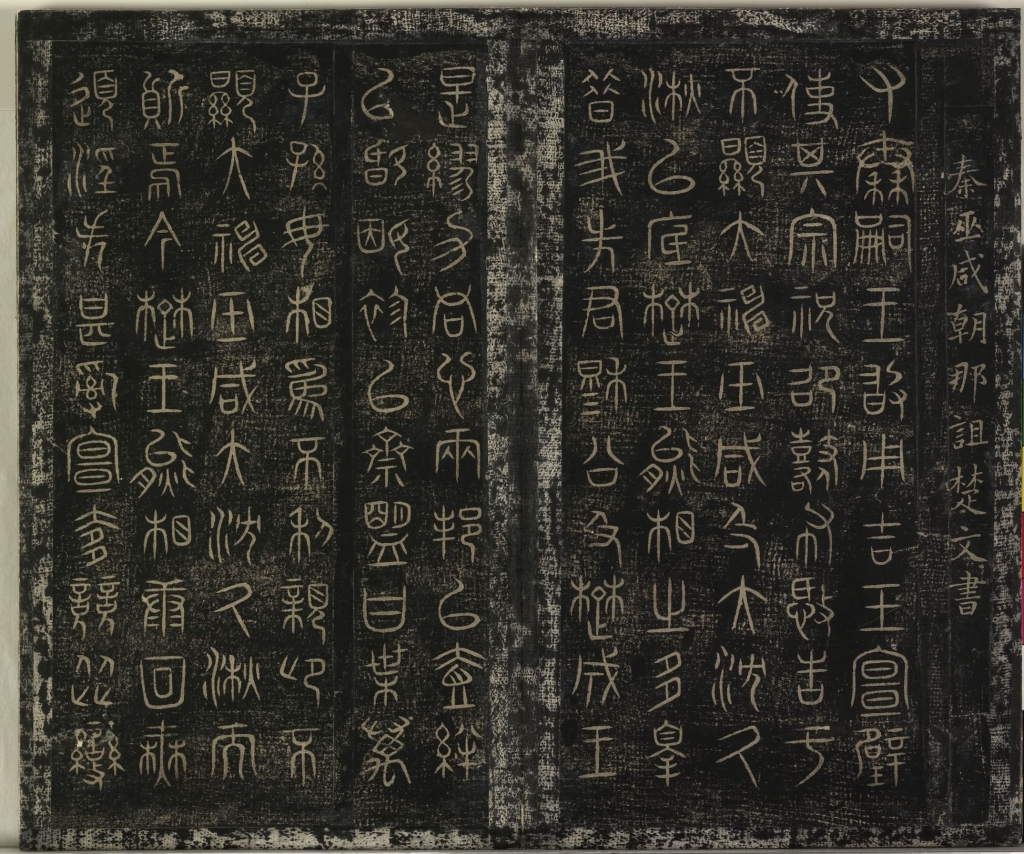 秦巫咸朝那詛楚文書
又秦嗣王敢用吉玉宣璧
使其宗祝邵鼛布憝告于
不顯大神巫咸及大沈久
湫以底楚王熊相之多辠
昔我先君穆公及楚成王
是繆力同心兩邦以壹絆
以婚姻袗以齋盟曰葉萬
子孫毋相為不利親卬不
顯大神巫咸大沈久湫而
質焉今楚王熊相康回無
道淫失甚亂宣奓競從變